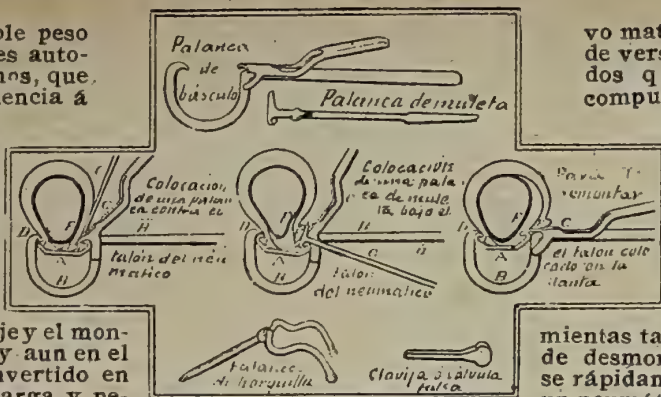 ble peso
es auto-
nos, que
encia á
Palanca
de
báscula
Palanca de muleta
vo mat
de vers
dos q
compu
Colocacion
de una palan
ca contra el
talón del neu
mático
C
D
F
H
A
B
Colocación
de una pala
ca de mule
ta bajo el
talon
del neumatico
D
F
H
G
A
B
Para
remontar
el talon colo
cado en la
llanta
D
F
C
A
B
je y el mon-
y aun en el
nvertido en
arga y pe-
Palanca
de horquilla
Clavija ó válvula
falsa
mientas ta
de desmon
se rápidan